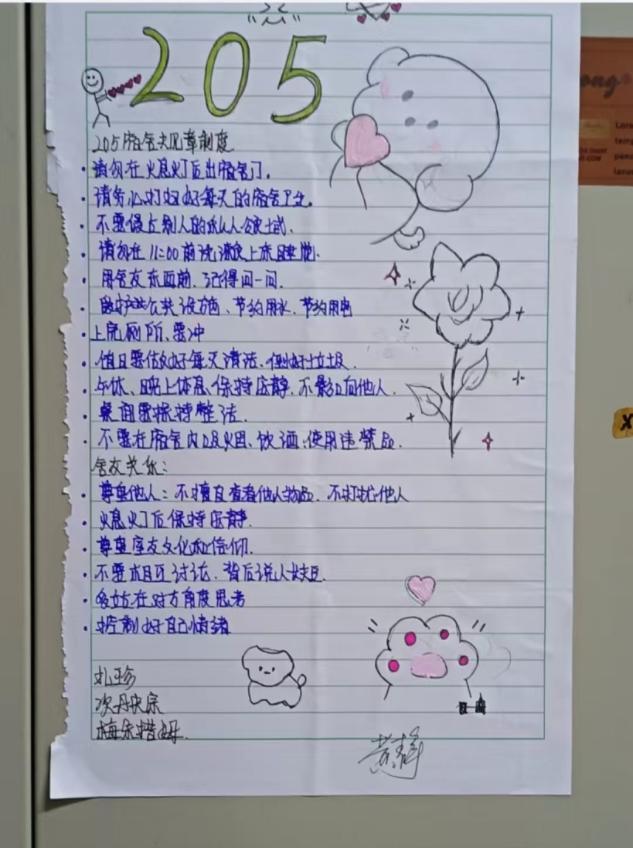 205
205宿舍规章制度
· 请勿在熄灯后出宿舍门。
· 请务必打扫好每天的宿舍卫生。
· 不要侵占别人的私人领域.
· 请勿在11:00前洗漱上床睡觉.
· 用舍友东西前,记得问一问.
· 爱护公共设施、节约用水、节约用电
· 上完厕所、要冲
· 值日要做好每天清洁、倒好垃圾.
· 午休、晚上休息保持安静.不影响他人.
· 桌面要保持整洁.
· 不要在宿舍内吸烟、饮酒、使用违禁品.
舍友关系:
· 尊重他人:不擅自查看他人物品.不打扰他人
· 熄灯后保持安静.
· 尊重室友文化和信仰.
· 不要相互讨论、背后说人
· 多站在对方角度思考
· 控制好自己情绪
扎珍
次丹央宗
梅朵措姆.